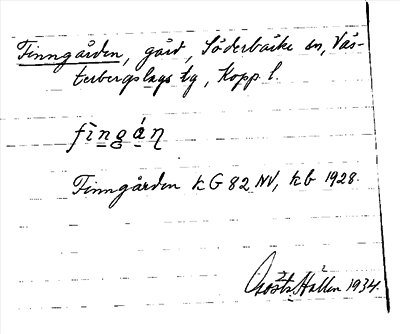 Finngården, gård, Söderbärke sn, Väs-
terbergslags tg, Kopp l.
fìngán
Finngården kG 82 NV, kb 1928.
Gösta Hallén 1934.